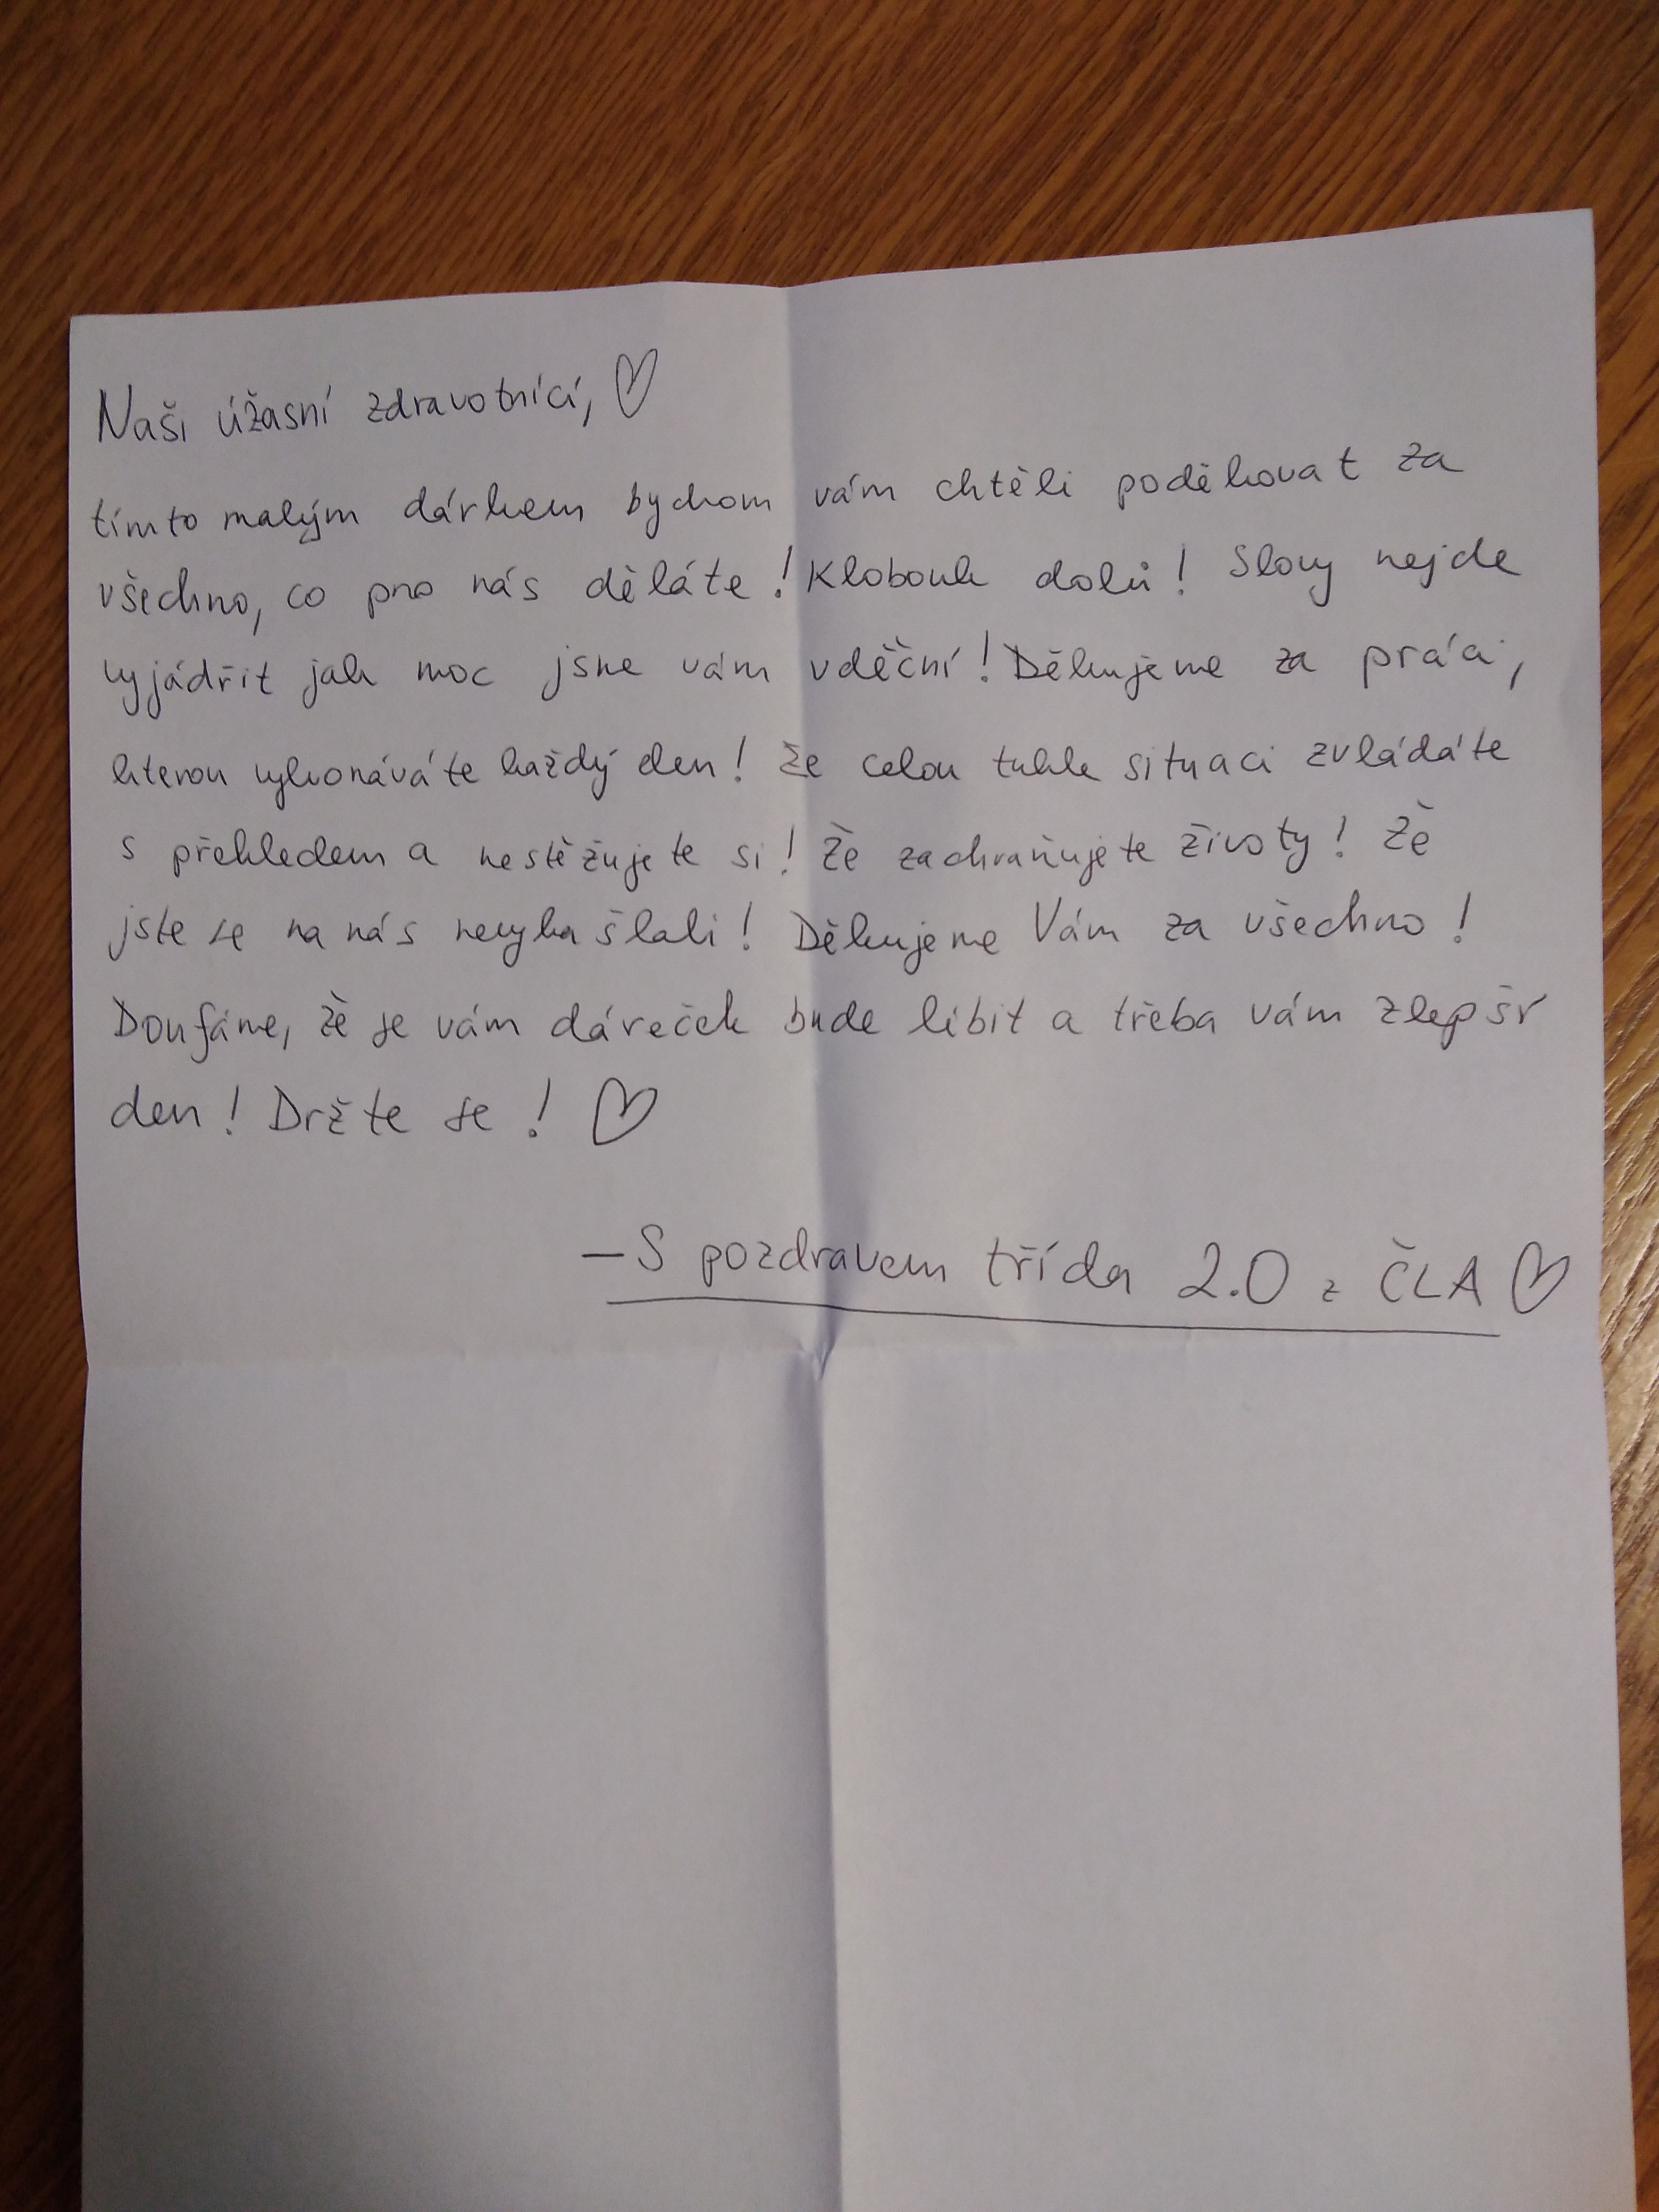 Naši úžasní zdravotníci, ♡
tímto malým dárkem bychom vám chtěli poděkovat za
všechno, co pro nás děláte! Klobouk dolů! Slovy nejde
vyjádřit jak moc jsme vám vděční! Děkujeme za práci,
kterou vykonáváte každý den! Že celou tuhle situaci zvládáte
s přehledem a nestěžujete si! Že zachraňujete životy! Že
jste se na nás nevykašlali! Děkujeme Vám za všechno!
Doufáme, že se vám dáreček bude líbit a třeba vám zlepší
den! Držte se! ♡
– S pozdravem třída 2.O z ČLA ♡